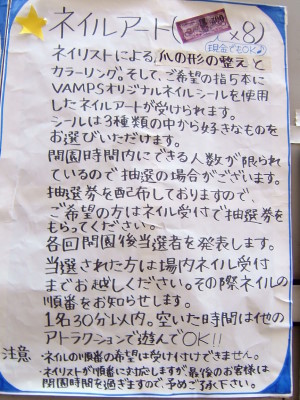 ネイルアート( ×8)
(現金でもOK♪)
ネイリストによる、爪の形の整えと
カラーリング。そして、ご希望の指5本に
VAMPSオリジナルネイルシールを使用
したネイルアートが受けられます。
シールは3種類の中から好きなものを
お選びいただけます。
開園時間内にできる人数が限られ
ているので抽選の場合がございます。
抽選券を配布しておりますので、
ご希望の方はネイル受付で抽選券を
もらってください。
各回開園後当選者を発表します。
当選された方は場内ネイル受付
までお越しください。その際ネイルの
順番をお知らせします。
1名30分以内。空いた時間は他の
アトラクションで遊んでOK!!
注意・ネイルの順番の希望は受け付けできません。
・ネイリストが順番に対応しますが最後のお客様は
閉園時間を過ぎますので、予めご了承下さい。